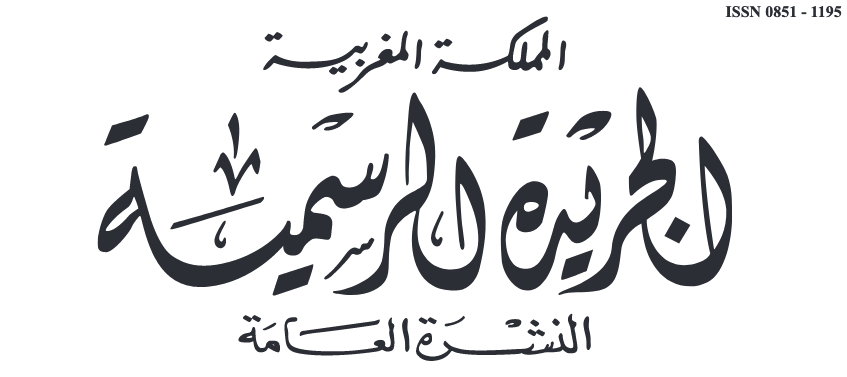 ISSN 0851 - 1195
المملكة المغربية
الجريدة الرسمية
النشرة العامة